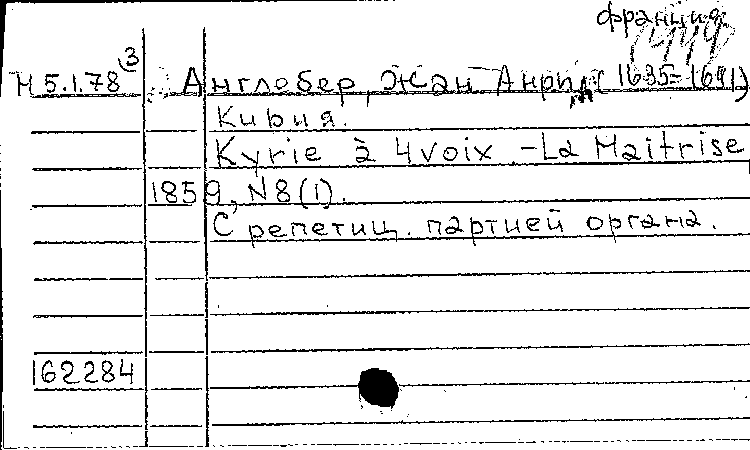 франция
М 5.1.78 (3 Англебер, Жан Анри (1635-1691)
Кирия.
Kyrie à 4 voix - La Maitrise
1859, N8 (1).
С репетиц. партией органа.
162284